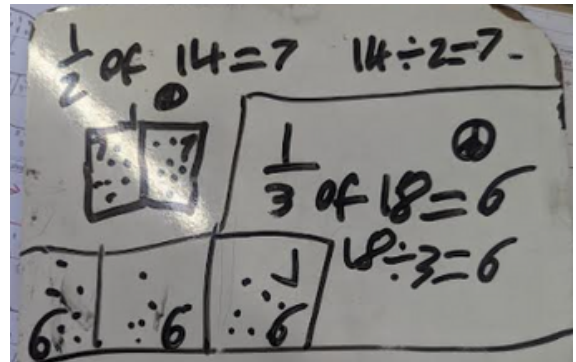 1/2 of 14=7 14÷2=7
7 7
1/3 of 18=6
18÷3=6
6 6 6